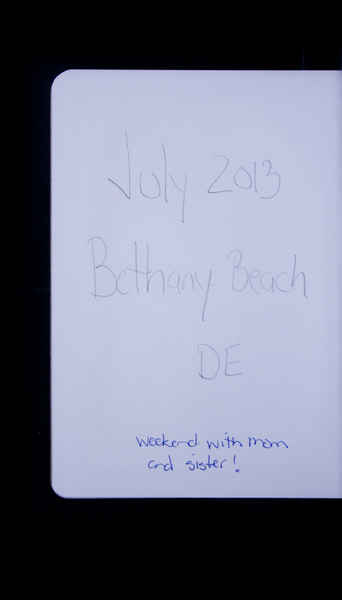 July 2013
Bethany Beach
DE
weekend with mom
and sister!